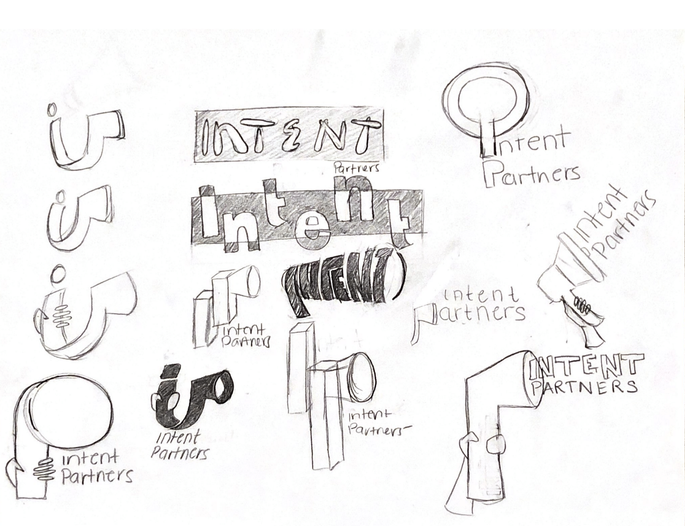 INTENT
Partners
Intent
Intent
Partners
INTENT
Intent
Partners
Intent
Partners
intent
Partners
Intent
Partners
intent
Partners
Intent
Partners
Intent
Partners
INTENT
PARTNERS